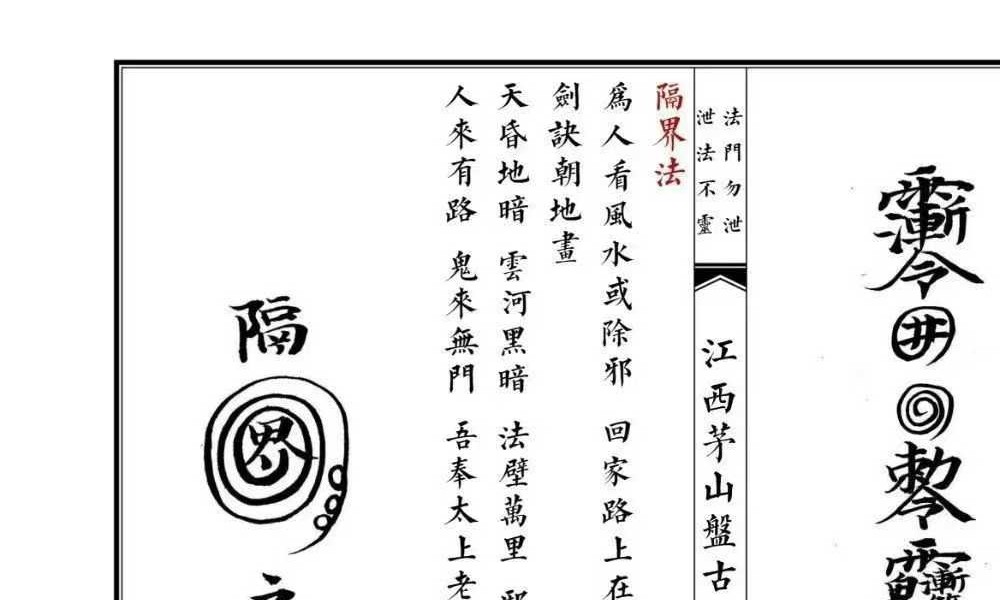 令
井
敕令
法門勿泄
泄法不靈
江西茅山盤古
隔界法
爲人看風水或除邪 回家路上在
劍訣朝地畫
天昏地暗 雲河黑暗 法壁萬里
人來有路 鬼來無門 吾奉太上老
隔
界